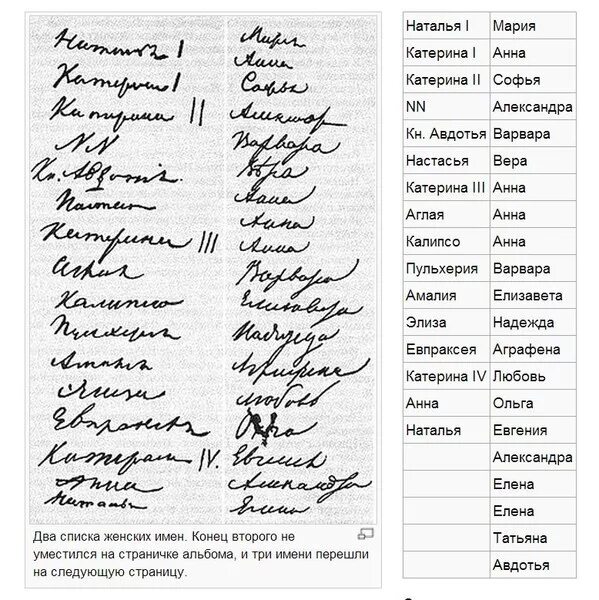 Наталья I
Катерина I
Катерина II
NN
Кн. Авдотья
Настасья
Катерина III
Аглая
Калипсо
Пульхерия
Амалия
Элиза
Евпраксея
Катерина IV.
Анна
Наталья
Мария
Анна
Софья
Александра
Варвара
Вѣра
Анна
Анна
Анна
Варвара
Елизавета
Надежда
Аграфена
Любовь
Ольга
Евгения
Александра
Елена
Два списка женских имен. Конец второго не
уместился на страничке альбома, и три имени перешли
на следующую страницу.
Наталья I Мария
Катерина I Анна
Катерина II Софья
NN Александра
Кн. Авдотья Варвара
Настасья Вера
Катерина III Анна
Аглая Анна
Калипсо Анна
Пульхерия Варвара
Амалия Елизавета
Элиза Надежда
Евпраксея Аграфена
Катерина IV Любовь
Анна Ольга
Наталья Евгения
Александра
Елена
Елена
Татьяна
Авдотья